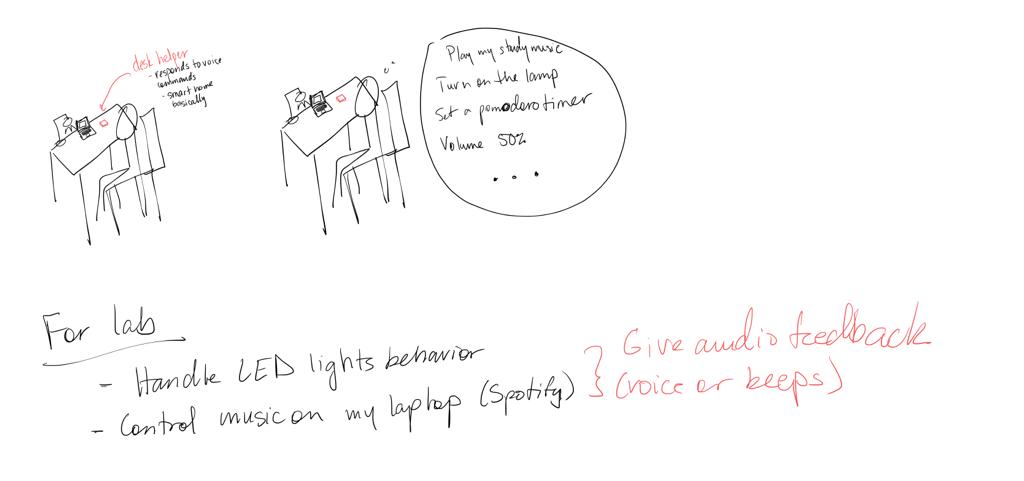 desk helper
- responds to voice
commands
- smart home
basically
Play my study music
Turn on the lamp
Set a pomodoro timer
Volume 50%
...
For lab
- Handle LED lights behavior
- Control music on my laptop (Spotify)
Give audio feedback
(voice or beeps)